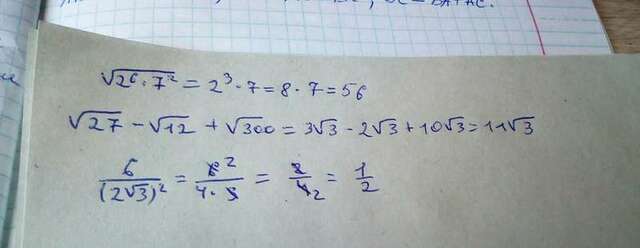 √2⁶·7² = 2³·7 = 8·7 = 56
√27 - √12 + √300 = 3√3 - 2√3 + 10√3 = 11√3
6/(2√3)² = 6²/4·3 = 2/4₂ = 1/2